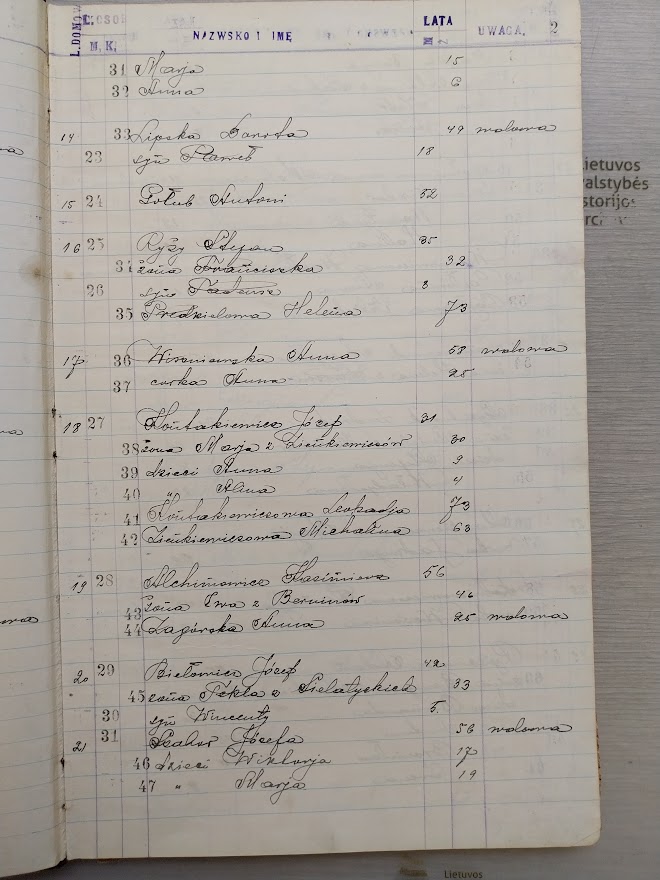 L. DOMÓW L. OSÓB NAZWSKO I IMĘ LATA UWAGA. 2
M. K. M
31 Marja 15
32 Anna 6
14 33 Lipska Dorota 49 wdowa
23 syn Paweł 18
15 24 Gołub Antoni 52
16 25 Ryży Stefan 35
34 żona Franciszka 32
26 syn Tadeusz 8
35 Helena 73
17 36 Wiśniewska Anna 53 wdowa
37 corka Anna 25
18 27 Józef 31
38 żona Marja z Zieńkiewiczów 30
39 dzieci Anna 9
40 " Alina 4
41 Leokadja 73
42 Zieńkiewiczowa Michalina 63
19 28 Alchimowicz Kazimierz 56
43 żona Ewa z 46
44 Zagórska Anna 25 wdowa
20 29 Józef 42
45 żona Tekla z 33
30 syn Wincenty 5.
21 31 Józefa 56 wdowa
46 dzieci Wiktorja 17
47 " Marja 19
Lietuvos
valstybės
istorijos
Lietuvos